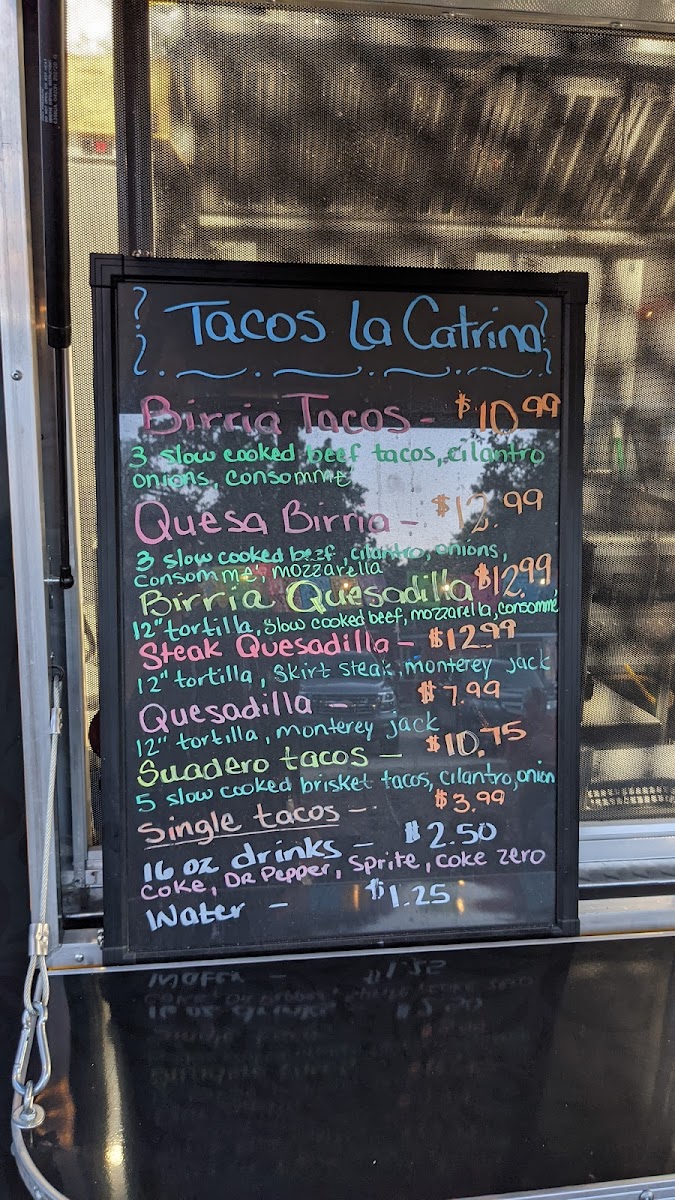 Tacos La Catrina
Birria Tacos - $10.99
3 slow cooked beef tacos, cilantro
onions, consommé
Quesa Birria - $12.99
3 slow cooked beef, cilantro, onions,
consommé, mozzarella
Birria Quesadilla $12.99
12" tortilla, slow cooked beef, mozzarella, consommé
Steak Quesadilla - $12.99
12" tortilla, skirt steak, monterey jack
Quesadilla - $7.99
12" tortilla, monterey jack
Suadero tacos - $10.75
5 slow cooked brisket tacos, cilantro, onion
Single tacos - $3.99
16 oz drinks - $2.50
Coke, DR Pepper, Sprite, Coke zero
Water - $1.25